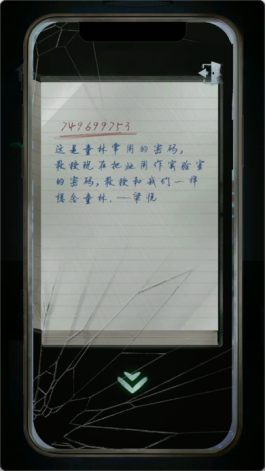 749699753
这是董林常用的密码。
教授现在把它用作实验室
的密码，教授和我们一样
想念董林.——梁悦